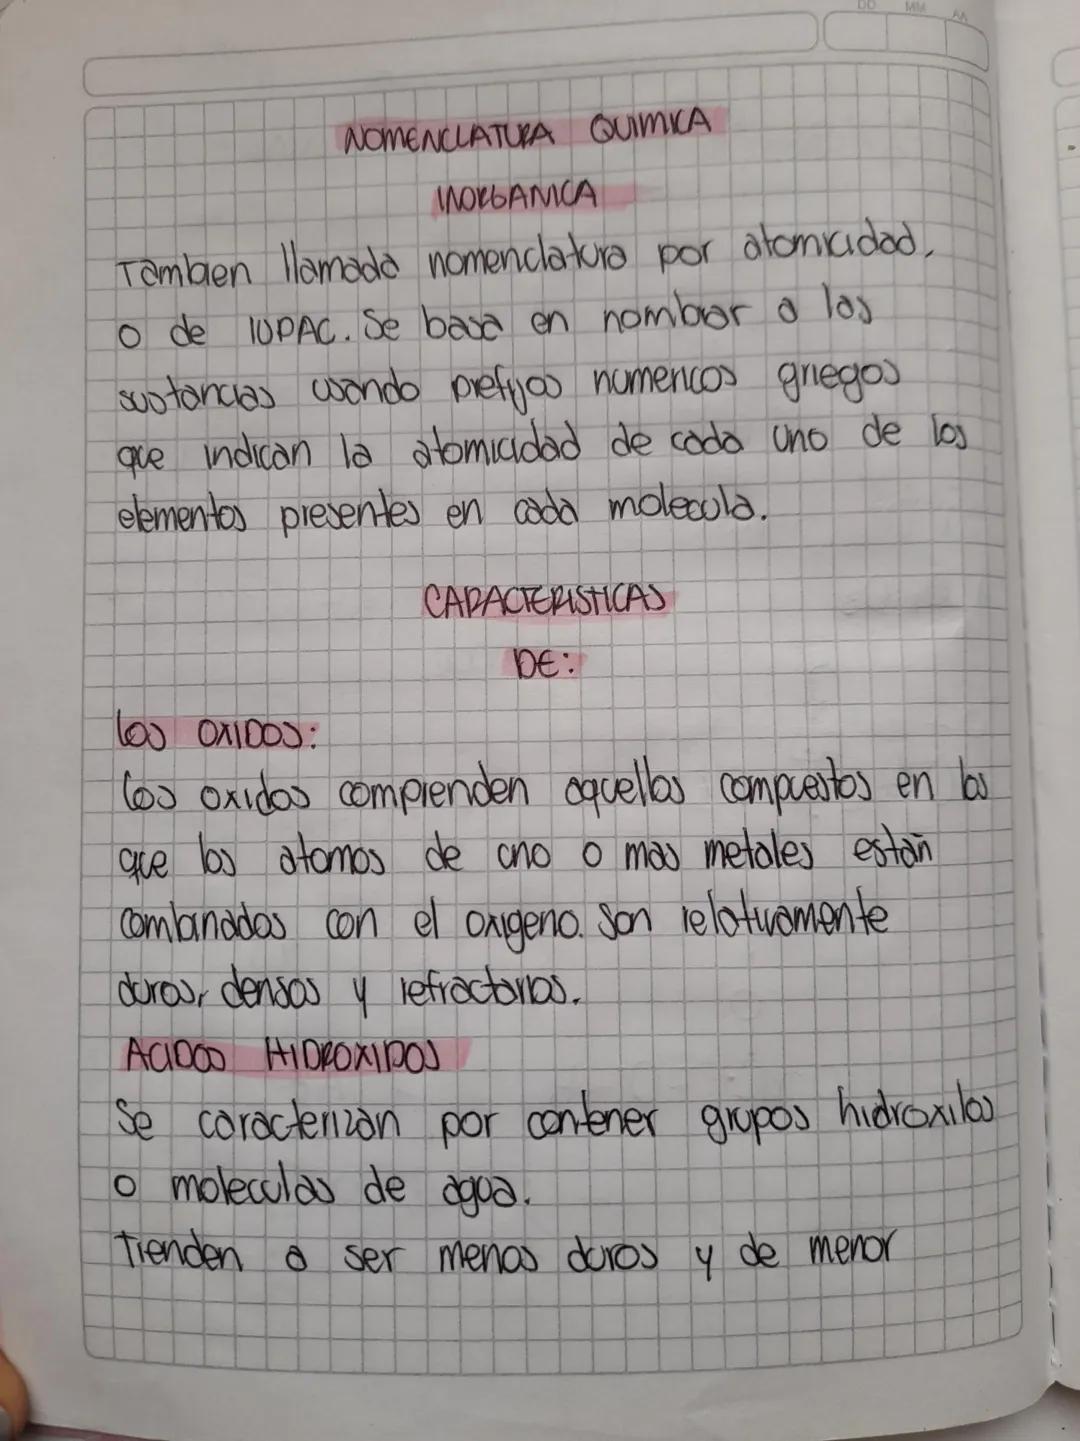 DD MM AA
NOMENCLATURA QUIMICA
INORGANICA
Tambien llamada nomenclatura por atomicidad,
o de IUPAC. Se basa en nombrar a las
sustancias usando prefijos numericos griegos
que indican la atomicidad de cada uno de los
elementos presentes en cada molecula.
CARACTERISTICAS
DE:
Los OXIDOS:
Los oxidos comprenden aquellos compuestos en los
que los atomos de uno o mas metales estan
combinados con el oxigeno. Son relativamente
duros, densos y refractarios.
ACIDOS HIDROXIDOS
Se caracterizan por contener grupos hidroxilos
o moleculas de agua.
Tienden a ser menos duros y de menor